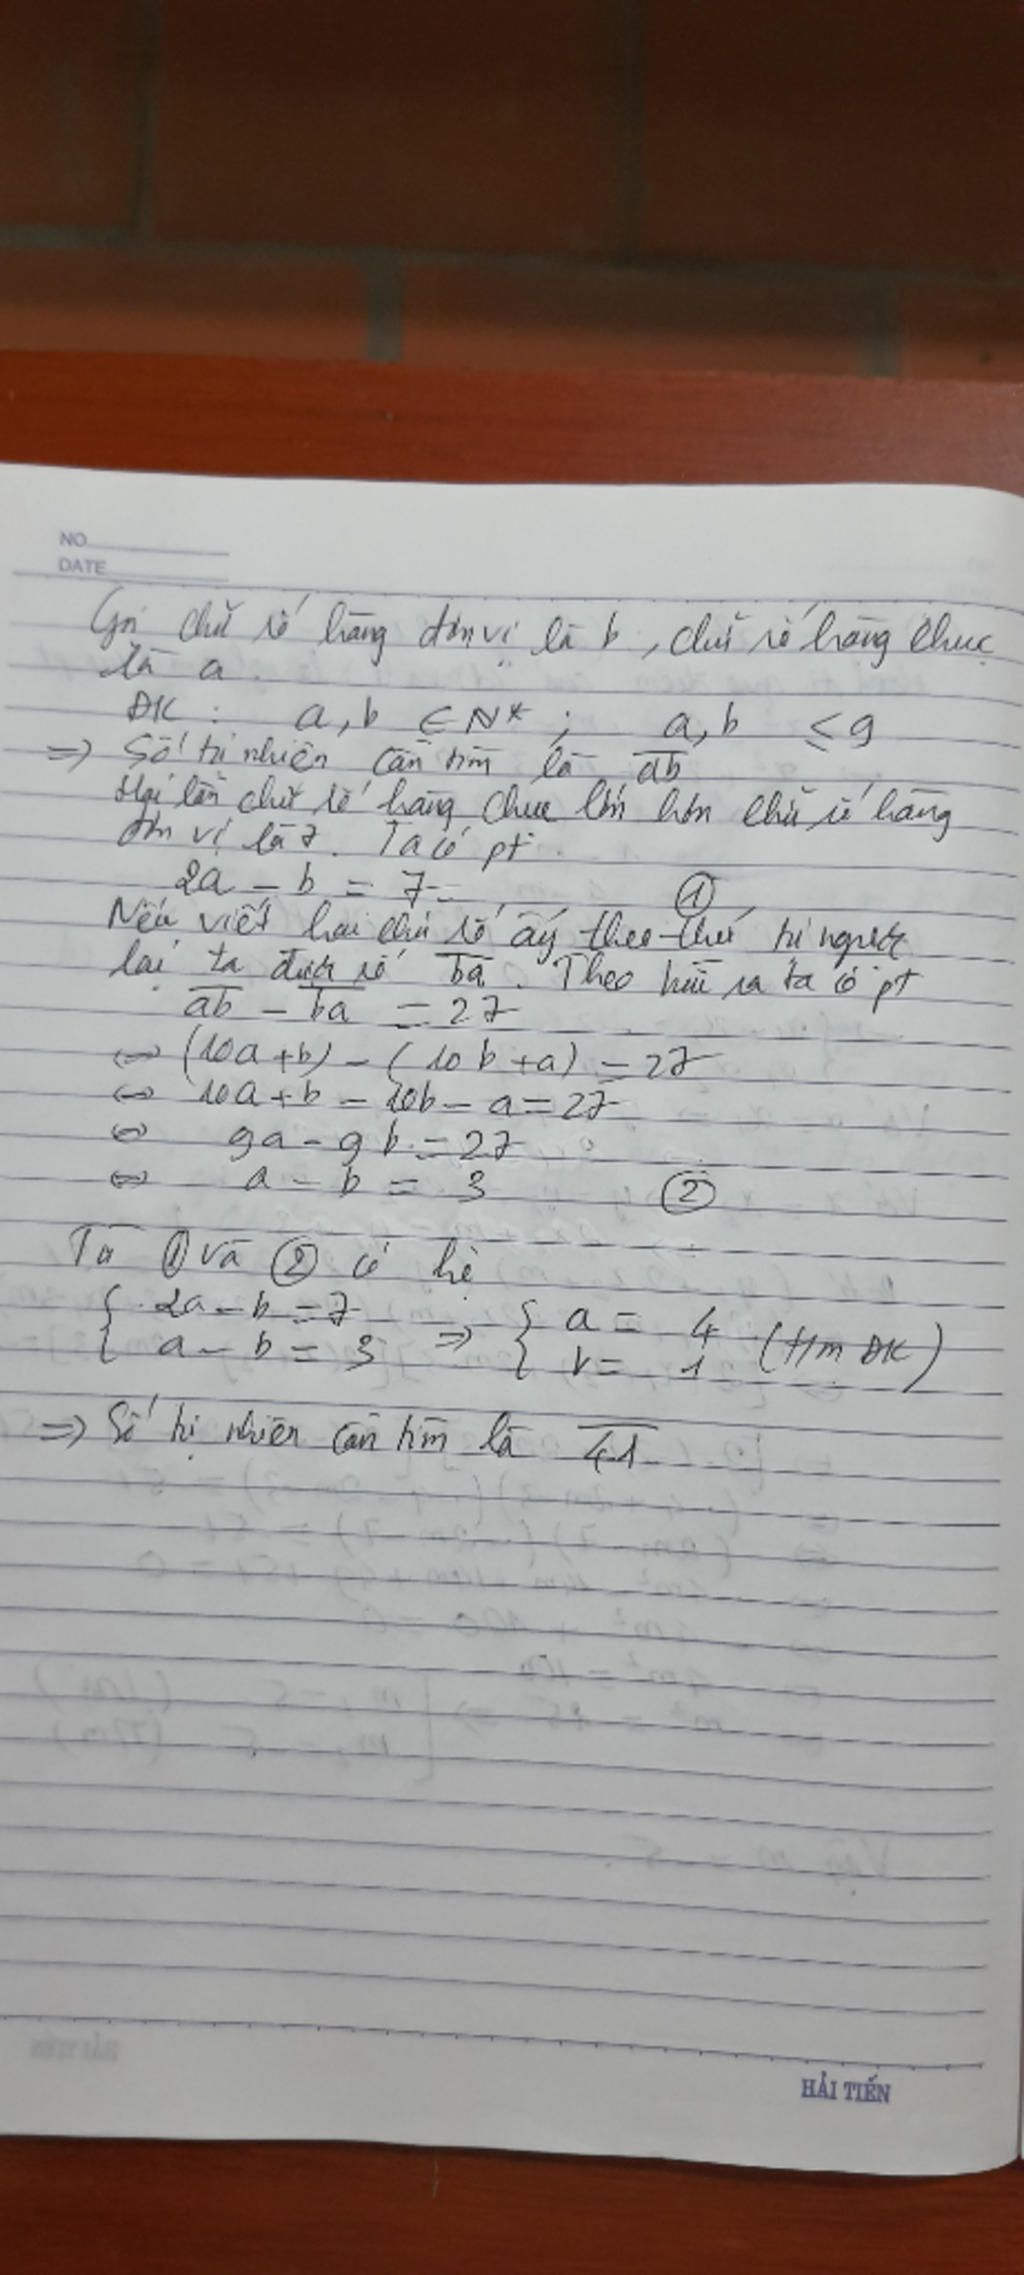 NO
DATE
Gọi chữ số hàng đơn vị là b, chữ số hàng chục
là a
ĐK : a, b ∈ N* ; a, b ≤ 9
=> Số tự nhiên cần tìm là \overline{ab}
Hai lần chữ số hàng chục lớn hơn chữ số hàng
đơn vị là 7. Ta có pt
2a - b = 7 ①
Nếu viết hai chữ số ấy theo thứ tự ngược
lại ta được số \overline{ba}. Theo bài ra ta có pt
\overline{ab} - \overline{ba} = 27
⇔ (10a + b) - (10b + a) = 27
⇔ 10a + b - 10b - a = 27
⇔ 9a - 9b = 27
⇔ a - b = 3 ②
Từ ① và ② có hệ
{ 2a - b = 7
{ a - b = 3 => { a = 4 b = 1 (t/m ĐK)
=> Số tự nhiên cần tìm là \overline{41}
HẢI TIẾN